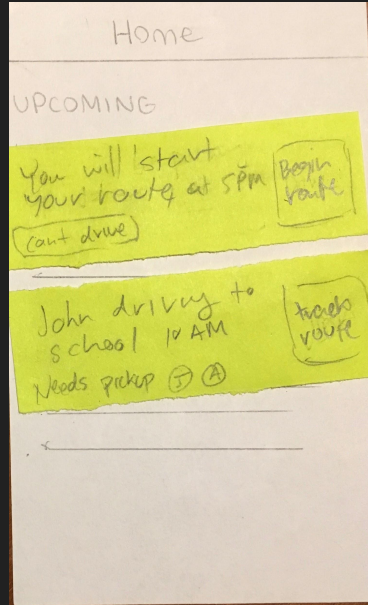 Home
UPCOMING
You will start
your route at 5PM
Begin
route
Can't drive
John driving to
school 10 AM
track
route
Needs pickup J A